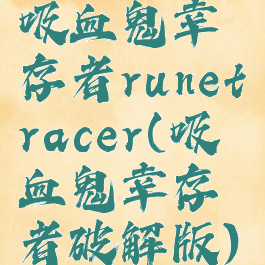 吸血鬼幸
存者runet
racer(吸
血鬼幸存
者破解版)